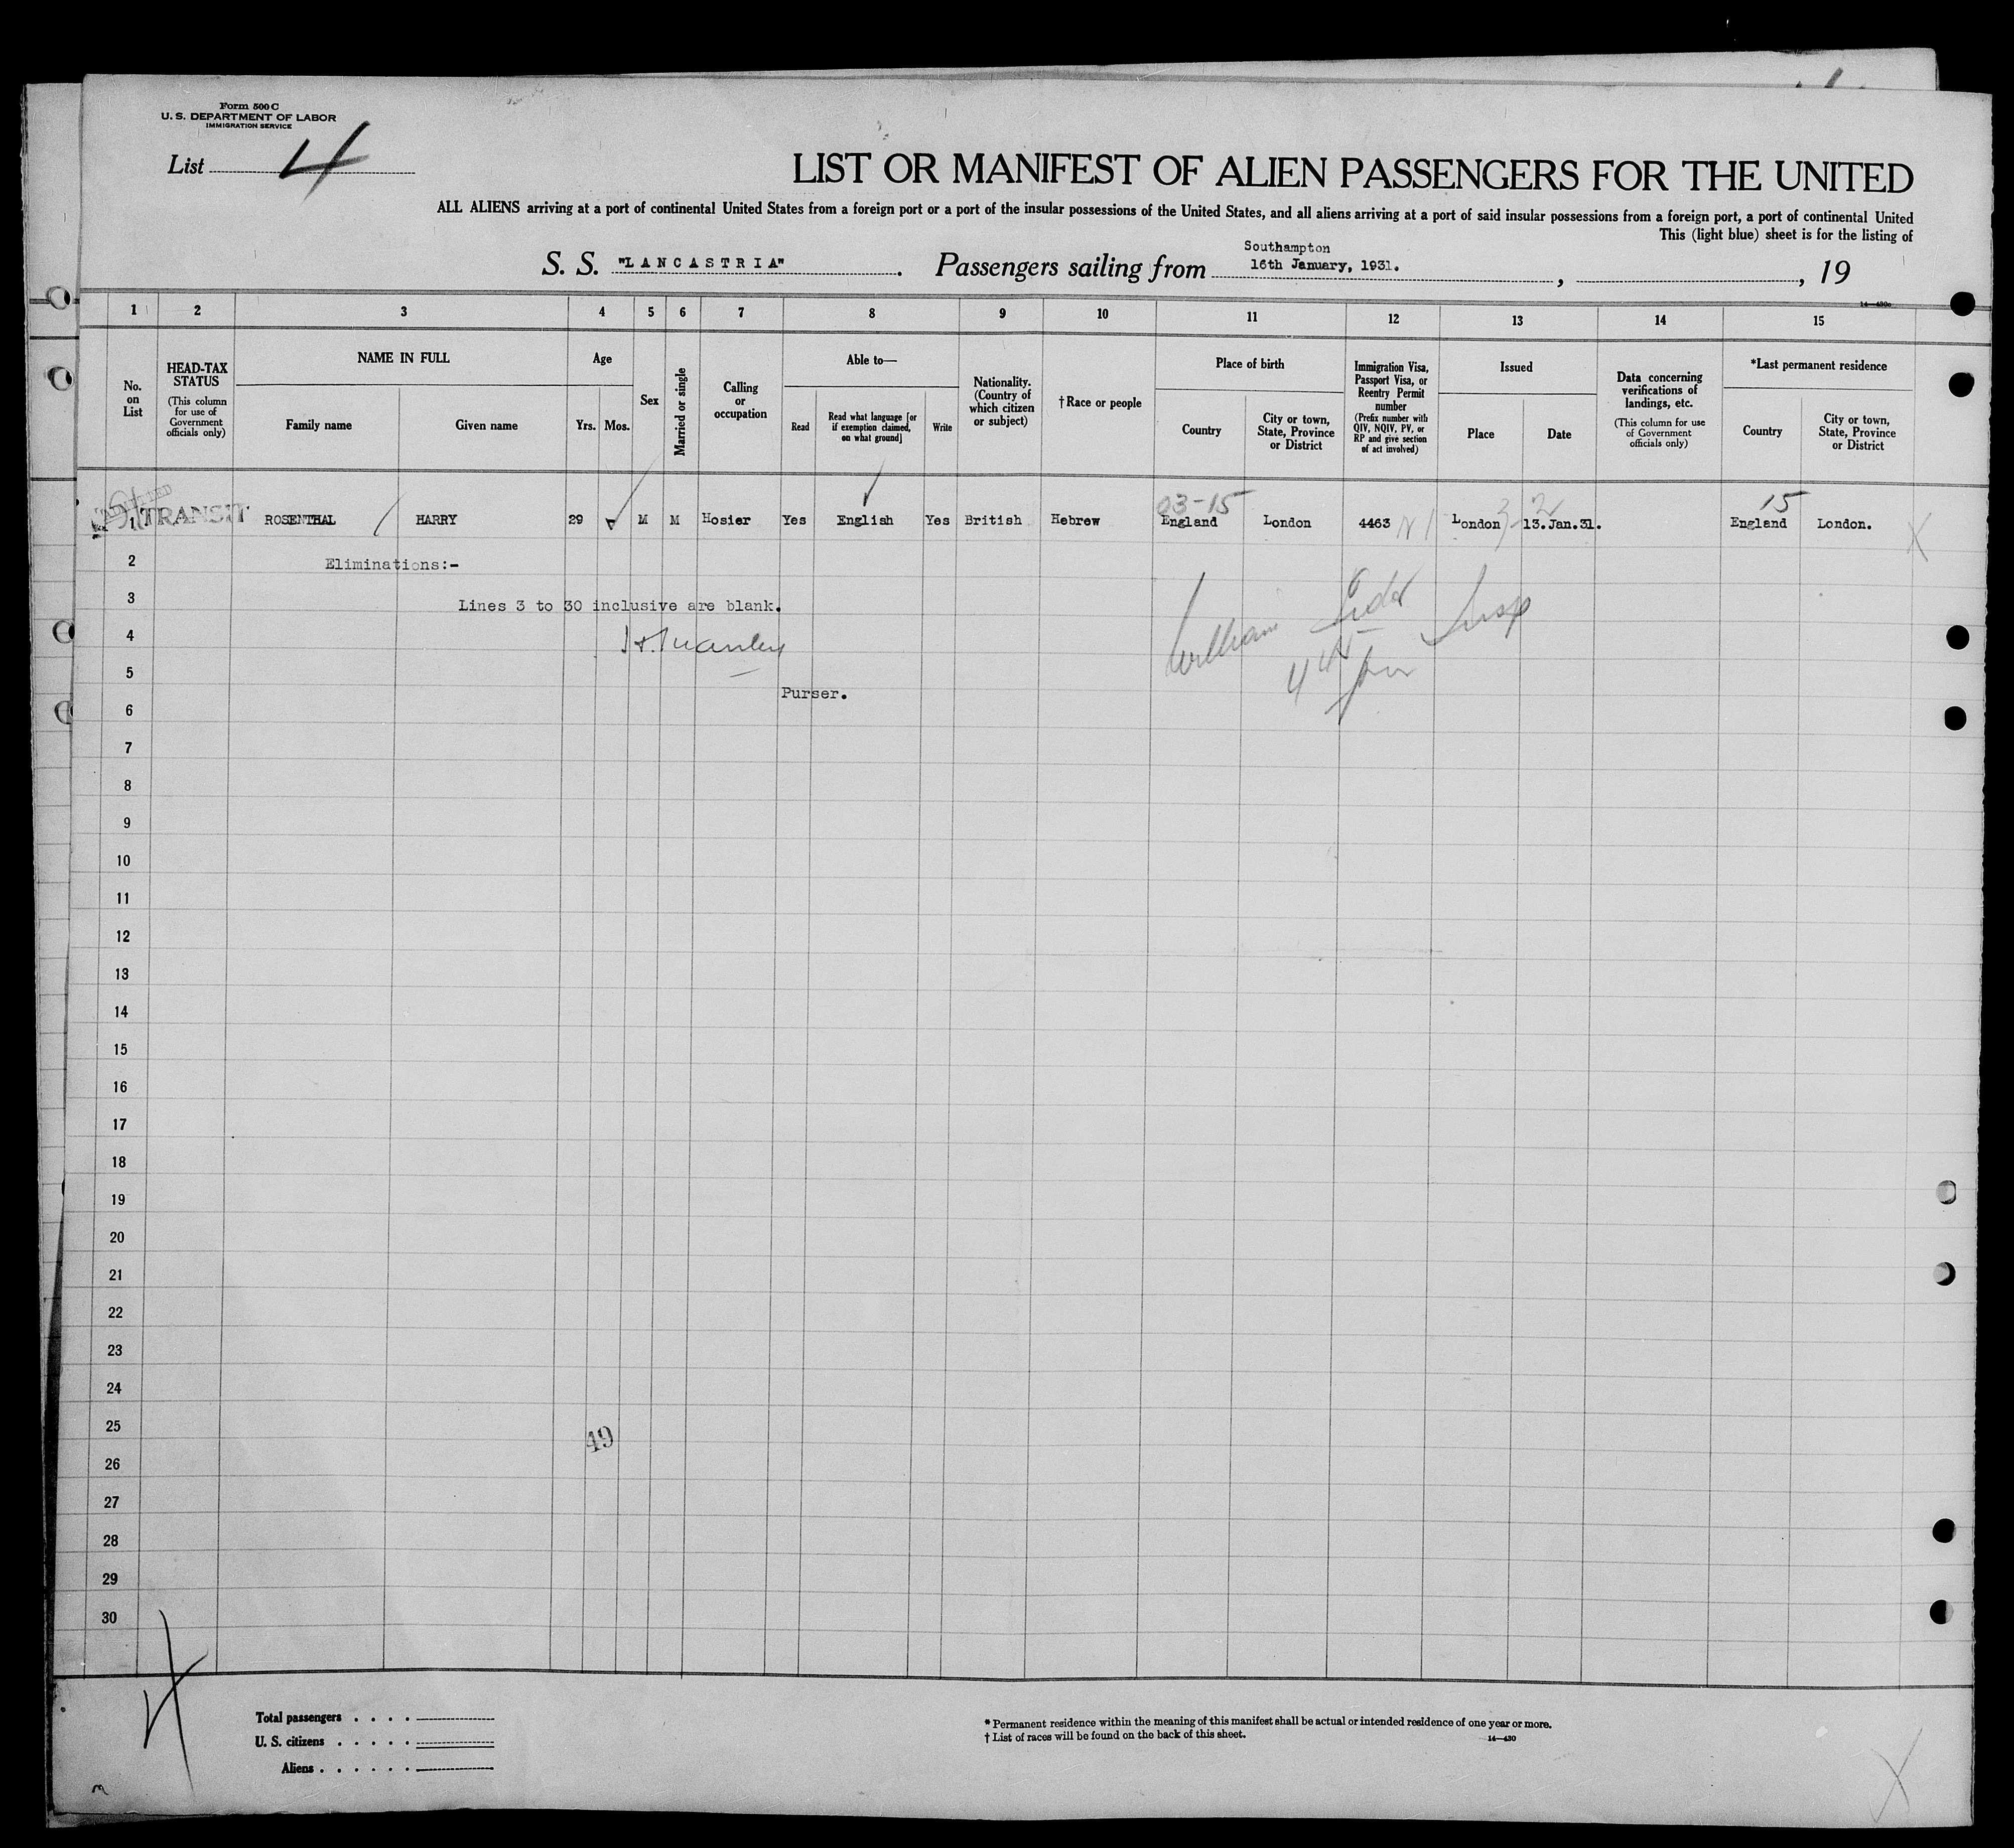 Form 500 C
U. S. DEPARTMENT OF LABOR
IMMIGRATION SERVICE
List 4
LIST OR MANIFEST OF ALIEN PASSENGERS FOR THE UNITED
ALL ALIENS arriving at a port of continental United States from a foreign port or a port of the insular possessions of the United States, and all aliens arriving at a port of said insular possessions from a foreign port, a port of continental United
This (light blue) sheet is for the listing of
S. S. "LANCASTRIA". Passengers sailing from Southampton 16th January, 1931. , , 19
14—430c
1 2 3 4 5 6 7 8 9 10 11 12 13 14 15
No. on List
HEAD-TAX STATUS (This column for use of Government officials only)
NAME IN FULL
Family name
Given name
Age
Yrs. Mos.
Sex
Married or single
Calling or occupation
Able to—
Read
Read what language [or if exemption claimed, on what ground]
Write
Nationality. (Country of which citizen or subject)
†Race or people
Place of birth
Country
City or town, State, Province or District
Immigration Visa, Passport Visa, or Reentry Permit number (Prefix number with QIV, NQIV, PV, or RP and give section of act involved)
Issued
Place
Date
Data concerning verifications of landings, etc. (This column for use of Government officials only)
*Last permanent residence
Country
City or town, State, Province or District
03-15 15
1 TRANSIT ROSENTHAL HARRY 29 M M Hosier Yes English Yes British Hebrew England London 4463 London 13.Jan.31. England London.
2 Eliminations:-
3 Lines 3 to 30 inclusive are blank.
4
William
5
Purser.
6
7
8
9
10
11
12
13
14
15
16
17
18
19
20
21
22
23
24
25
49
26
27
28
29
30
Total passengers . . . .
U. S. citizens . . . . .
Aliens . . . . . .
* Permanent residence within the meaning of this manifest shall be actual or intended residence of one year or more.
† List of races will be found on the back of this sheet.
14—430